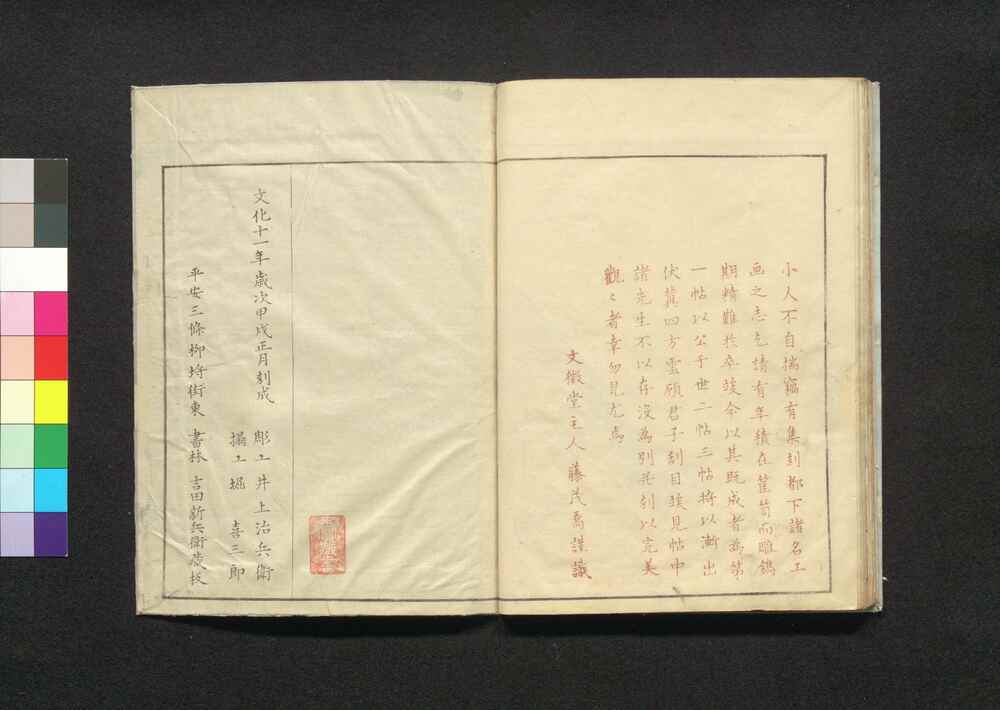 小人不自揣竊有集刻都下諸名工
画之志乞請有年積在篋笥而雕鐫
期精難於卒竣今以其既成者為第
一帖以公于世二帖三帖将以漸出
伏冀四方雲顧君子刮目竢見帖中
諸先生不以存没為別共刻以完美
觀々者幸勿見尤焉
文徴堂主人藤茂喬謹識
文化十一年歳次甲戌正月刻成
彫工井上治兵衛
搨工堀喜三郎
平安三條柳埒街東書林吉田新兵衛蔵板